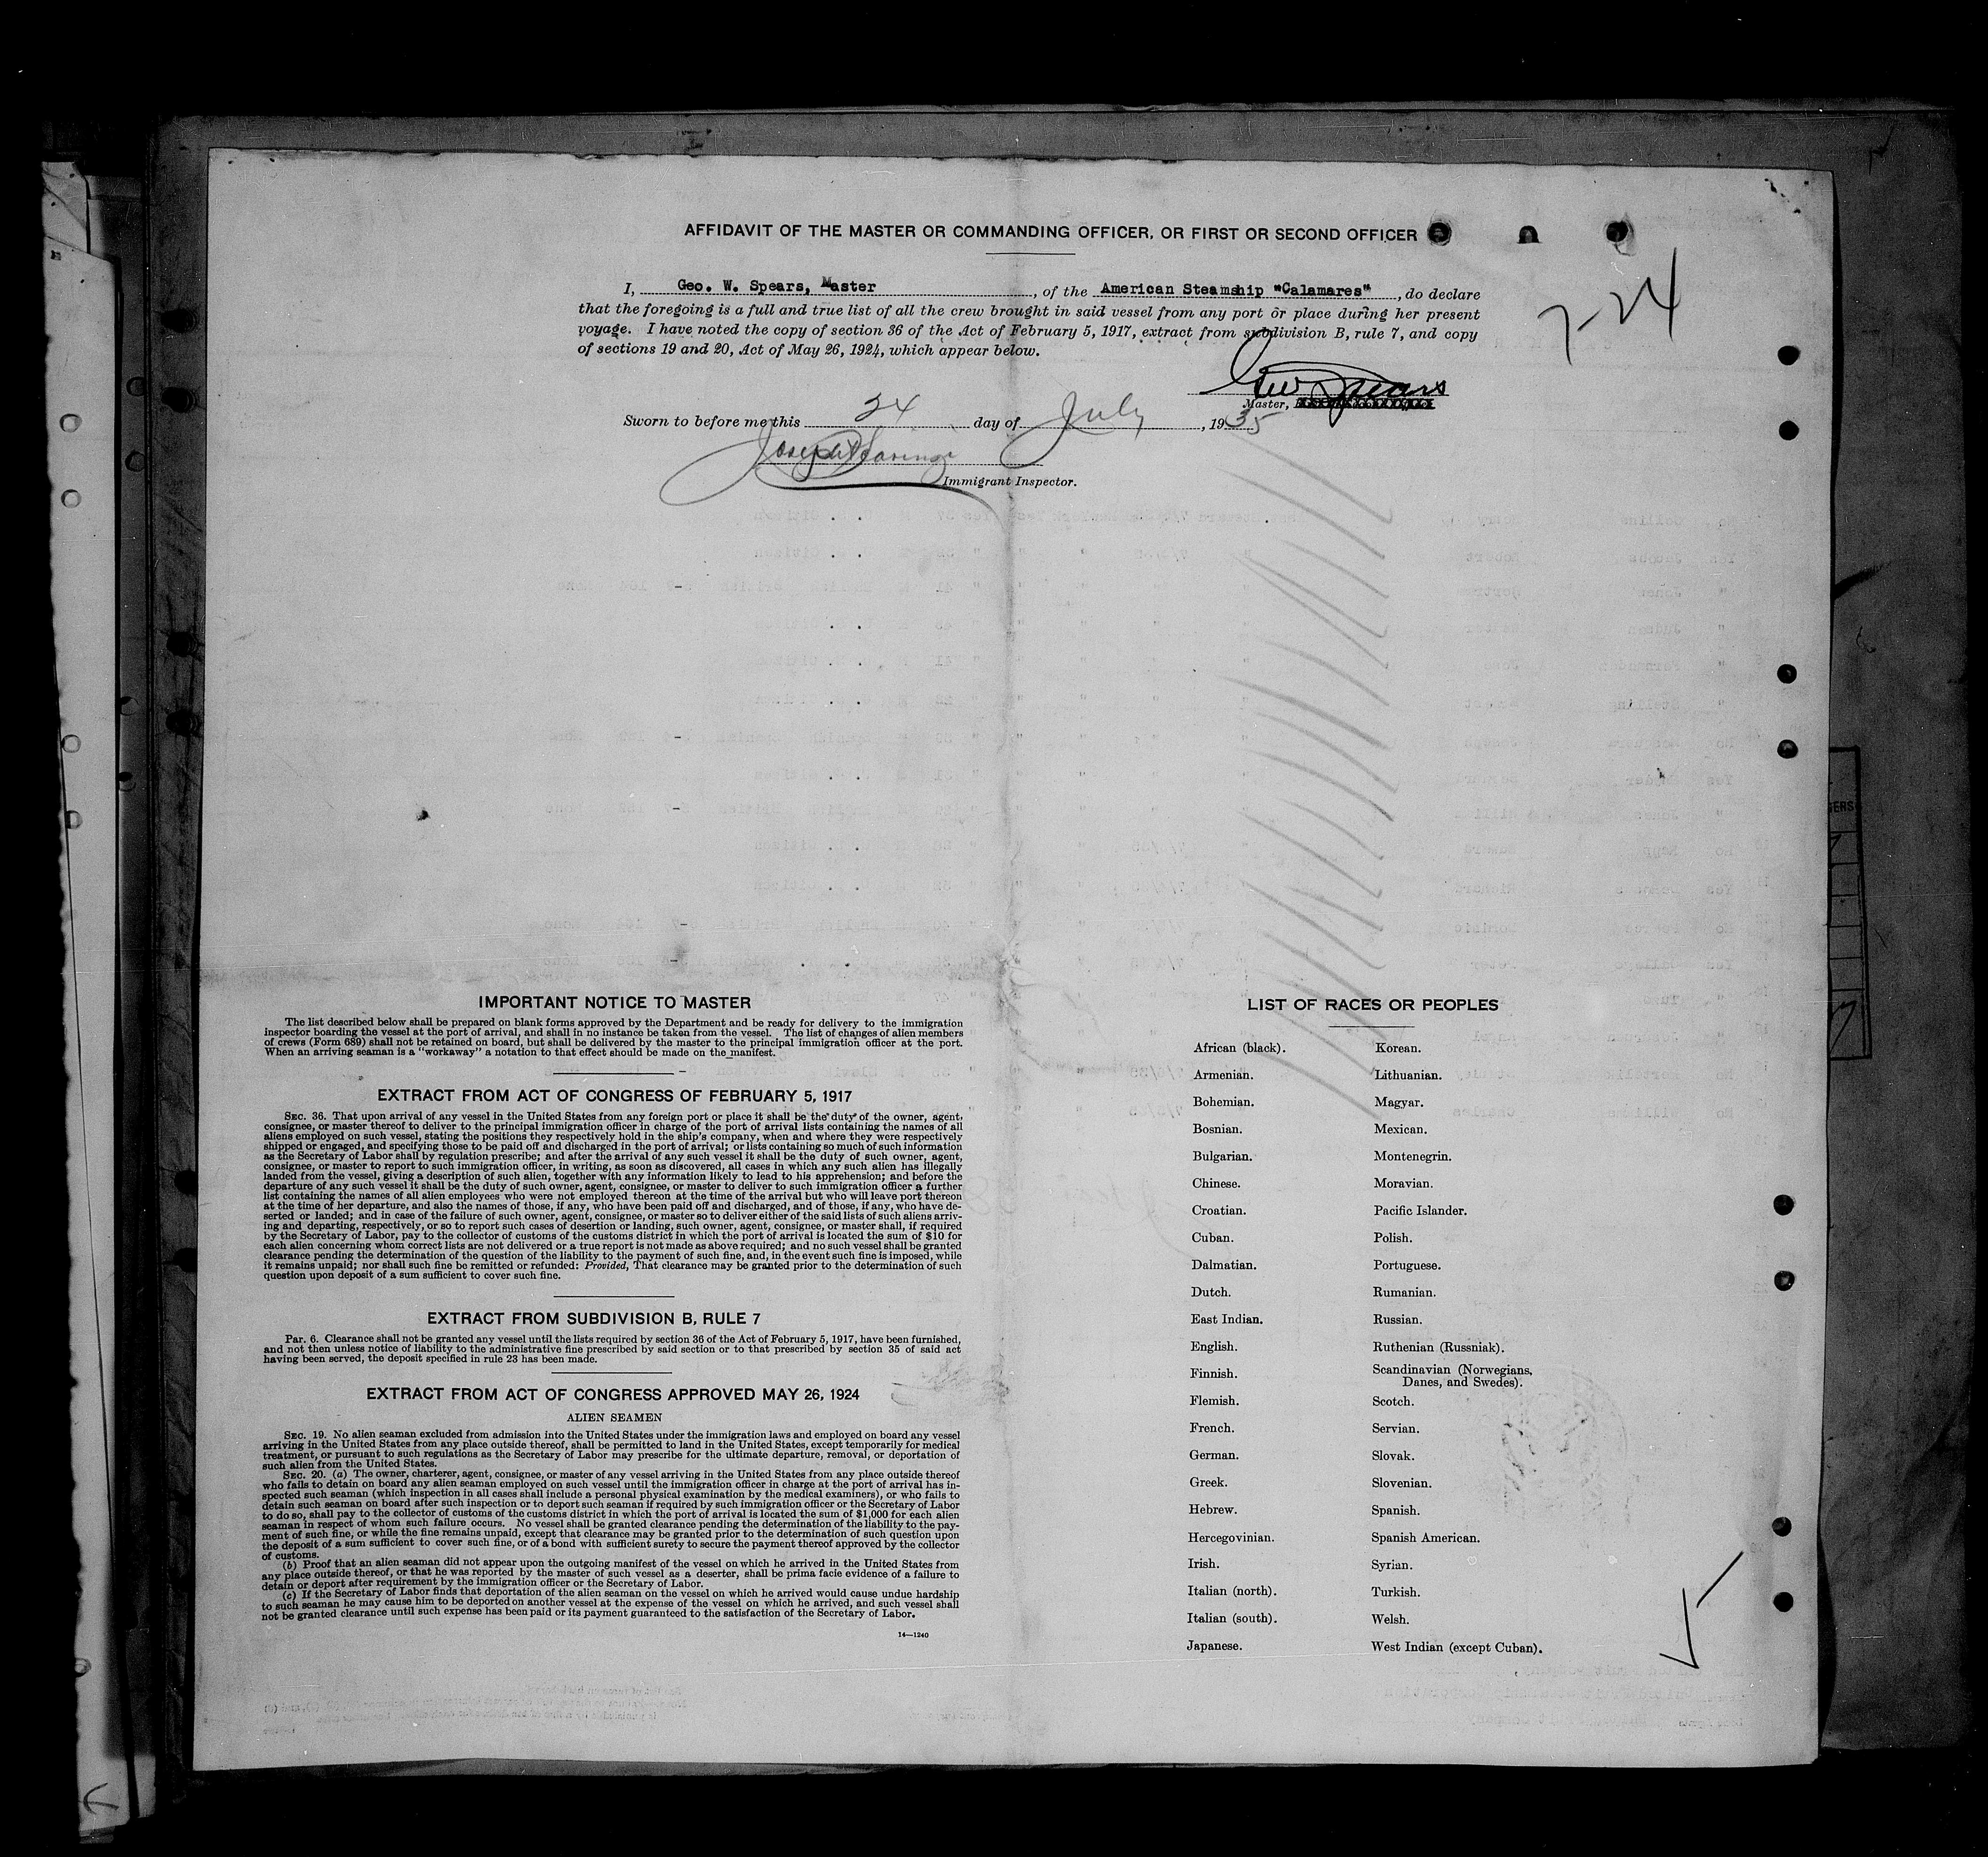 AFFIDAVIT OF THE MASTER OR COMMANDING OFFICER, OR FIRST OR SECOND OFFICER
7-24
I, Geo. W. Spears, Master, of the American Steamship "Calamares", do declare
that the foregoing is a full and true list of all the crew brought in said vessel from any port or place during her present
voyage. I have noted the copy of section 36 of the Act of February 5, 1917, extract from subdivision B, rule 7, and copy
of sections 19 and 20, Act of May 26, 1924, which appear below.
Geo W Spears
Master,
Sworn to before me this 24 day of July, 1935
Joseph
Immigrant Inspector.
IMPORTANT NOTICE TO MASTER
The list described below shall be prepared on blank forms approved by the Department and be ready for delivery to the immigration
inspector boarding the vessel at the port of arrival, and shall in no instance be taken from the vessel. The list of changes of alien members
of crews (Form 689) shall not be retained on board, but shall be delivered by the master to the principal immigration officer at the port.
When an arriving seaman is a "workaway" a notation to that effect should be made on the manifest.
EXTRACT FROM ACT OF CONGRESS OF FEBRUARY 5, 1917
SEC. 36. That upon arrival of any vessel in the United States from any foreign port or place it shall be the duty of the owner, agent,
consignee, or master thereof to deliver to the principal immigration officer in charge of the port of arrival lists containing the names of all
aliens employed on such vessel, stating the positions they respectively hold in the ship's company, when and where they were respectively
shipped or engaged, and specifying those to be paid off and discharged in the port of arrival; or lists containing so much of such information
as the Secretary of Labor shall by regulation prescribe; and after the arrival of any such vessel it shall be the duty of such owner, agent,
consignee, or master to report to such immigration officer, in writing, as soon as discovered, all cases in which any such alien has illegally
landed from the vessel, giving a description of such alien, together with any information likely to lead to his apprehension; and before the
departure of any such vessel it shall be the duty of such owner, agent, consignee, or master to deliver to such immigration officer a further
list containing the names of all alien employees who were not employed thereon at the time of the arrival but who will leave port thereon
at the time of her departure, and also the names of those, if any, who have been paid off and discharged, and of those, if any, who have de-
serted or landed; and in case of the failure of such owner, agent, consignee, or master so to deliver either of the said lists of such aliens arriv-
ing and departing, respectively, or so to report such cases of desertion or landing, such owner, agent, consignee, or master shall, if required
by the Secretary of Labor, pay to the collector of customs of the customs district in which the port of arrival is located the sum of $10 for
each alien concerning whom correct lists are not delivered or a true report is not made as above required; and no such vessel shall be granted
clearance pending the determination of the question of the liability to the payment of such fine, and, in the event such fine is imposed, while
it remains unpaid; nor shall such fine be remitted or refunded: Provided, That clearance may be granted prior to the determination of such
question upon deposit of a sum sufficient to cover such fine.
EXTRACT FROM SUBDIVISION B, RULE 7
Par. 6. Clearance shall not be granted any vessel until the lists required by section 36 of the Act of February 5, 1917, have been furnished,
and not then unless notice of liability to the administrative fine prescribed by said section or to that prescribed by section 35 of said act
having been served, the deposit specified in rule 23 has been made.
EXTRACT FROM ACT OF CONGRESS APPROVED MAY 26, 1924
ALIEN SEAMEN
SEC. 19. No alien seaman excluded from admission into the United States under the immigration laws and employed on board any vessel
arriving in the United States from any place outside thereof, shall be permitted to land in the United States, except temporarily for medical
treatment, or pursuant to such regulations as the Secretary of Labor may prescribe for the ultimate departure, removal, or deportation of
such alien from the United States.
SEC. 20. (a) The owner, charterer, agent, consignee, or master of any vessel arriving in the United States from any place outside thereof
who fails to detain on board any alien seaman employed on such vessel until the immigration officer in charge at the port of arrival has in-
spected such seaman (which inspection in all cases shall include a personal physical examination by the medical examiners), or who fails to
detain such seaman on board after such inspection or to deport such seaman if required by such immigration officer or the Secretary of Labor
to do so, shall pay to the collector of customs of the customs district in which the port of arrival is located the sum of $1,000 for each alien
seaman in respect of whom such failure occurs. No vessel shall be granted clearance pending the determination of the liability to the pay-
ment of such fine, or while the fine remains unpaid, except that clearance may be granted prior to the determination of such question upon
the deposit of a sum sufficient to cover such fine, or of a bond with sufficient surety to secure the payment thereof approved by the collector
of customs.
(b) Proof that an alien seaman did not appear upon the outgoing manifest of the vessel on which he arrived in the United States from
any place outside thereof, or that he was reported by the master of such vessel as a deserter, shall be prima facie evidence of a failure to
detain or deport after requirement by the immigration officer or the Secretary of Labor.
(c) If the Secretary of Labor finds that deportation of the alien seaman on the vessel on which he arrived would cause undue hardship
to such seaman he may cause him to be deported on another vessel at the expense of the vessel on which he arrived, and such vessel shall
not be granted clearance until such expense has been paid or its payment guaranteed to the satisfaction of the Secretary of Labor.
14—1240
LIST OF RACES OR PEOPLES
African (black).
Armenian.
Bohemian.
Bosnian.
Bulgarian.
Chinese.
Croatian.
Cuban.
Dalmatian.
Dutch.
East Indian.
English.
Finnish.
Flemish.
French.
German.
Greek.
Hebrew.
Hercegovinian.
Irish.
Italian (north).
Italian (south).
Japanese.
Korean.
Lithuanian.
Magyar.
Mexican.
Montenegrin.
Moravian.
Pacific Islander.
Polish.
Portuguese.
Rumanian.
Russian.
Ruthenian (Russniak).
Scandinavian (Norwegians,
Danes, and Swedes).
Scotch.
Servian.
Slovak.
Slovenian.
Spanish.
Spanish American.
Syrian.
Turkish.
Welsh.
West Indian (except Cuban).